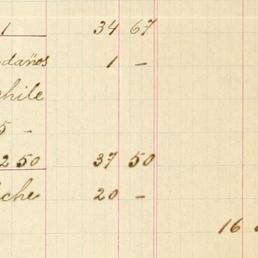 1 34 67
daños 1 —
chile
5 -
2 50 37 50
che 20 -
16